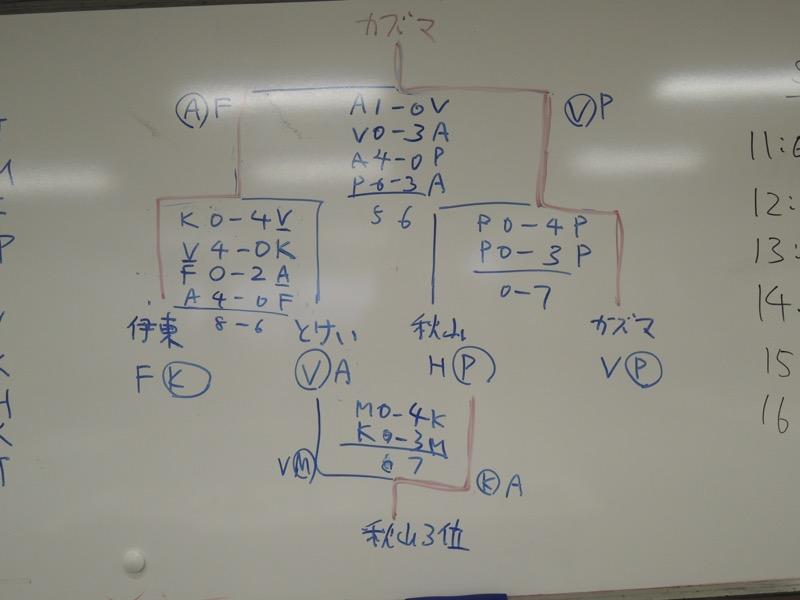 カズマ
Ⓐ F
A 1-0 V
V 0-3 A
A 4-0 P
P 0-3 A
5 6
Ⓥ P
K 0-4 V
V 4-0 K
F 0-2 A
A 4-0 F
8-6
P 0-4 P
P 0-3 P
0-7
伊東
とけい
秋山
カズマ
F Ⓚ
Ⓥ A
H Ⓟ
V Ⓟ
M 0-4 K
K 0-3 M
0 7
V Ⓜ
Ⓚ A
秋山3位
11:
12:
13:
14
15
16